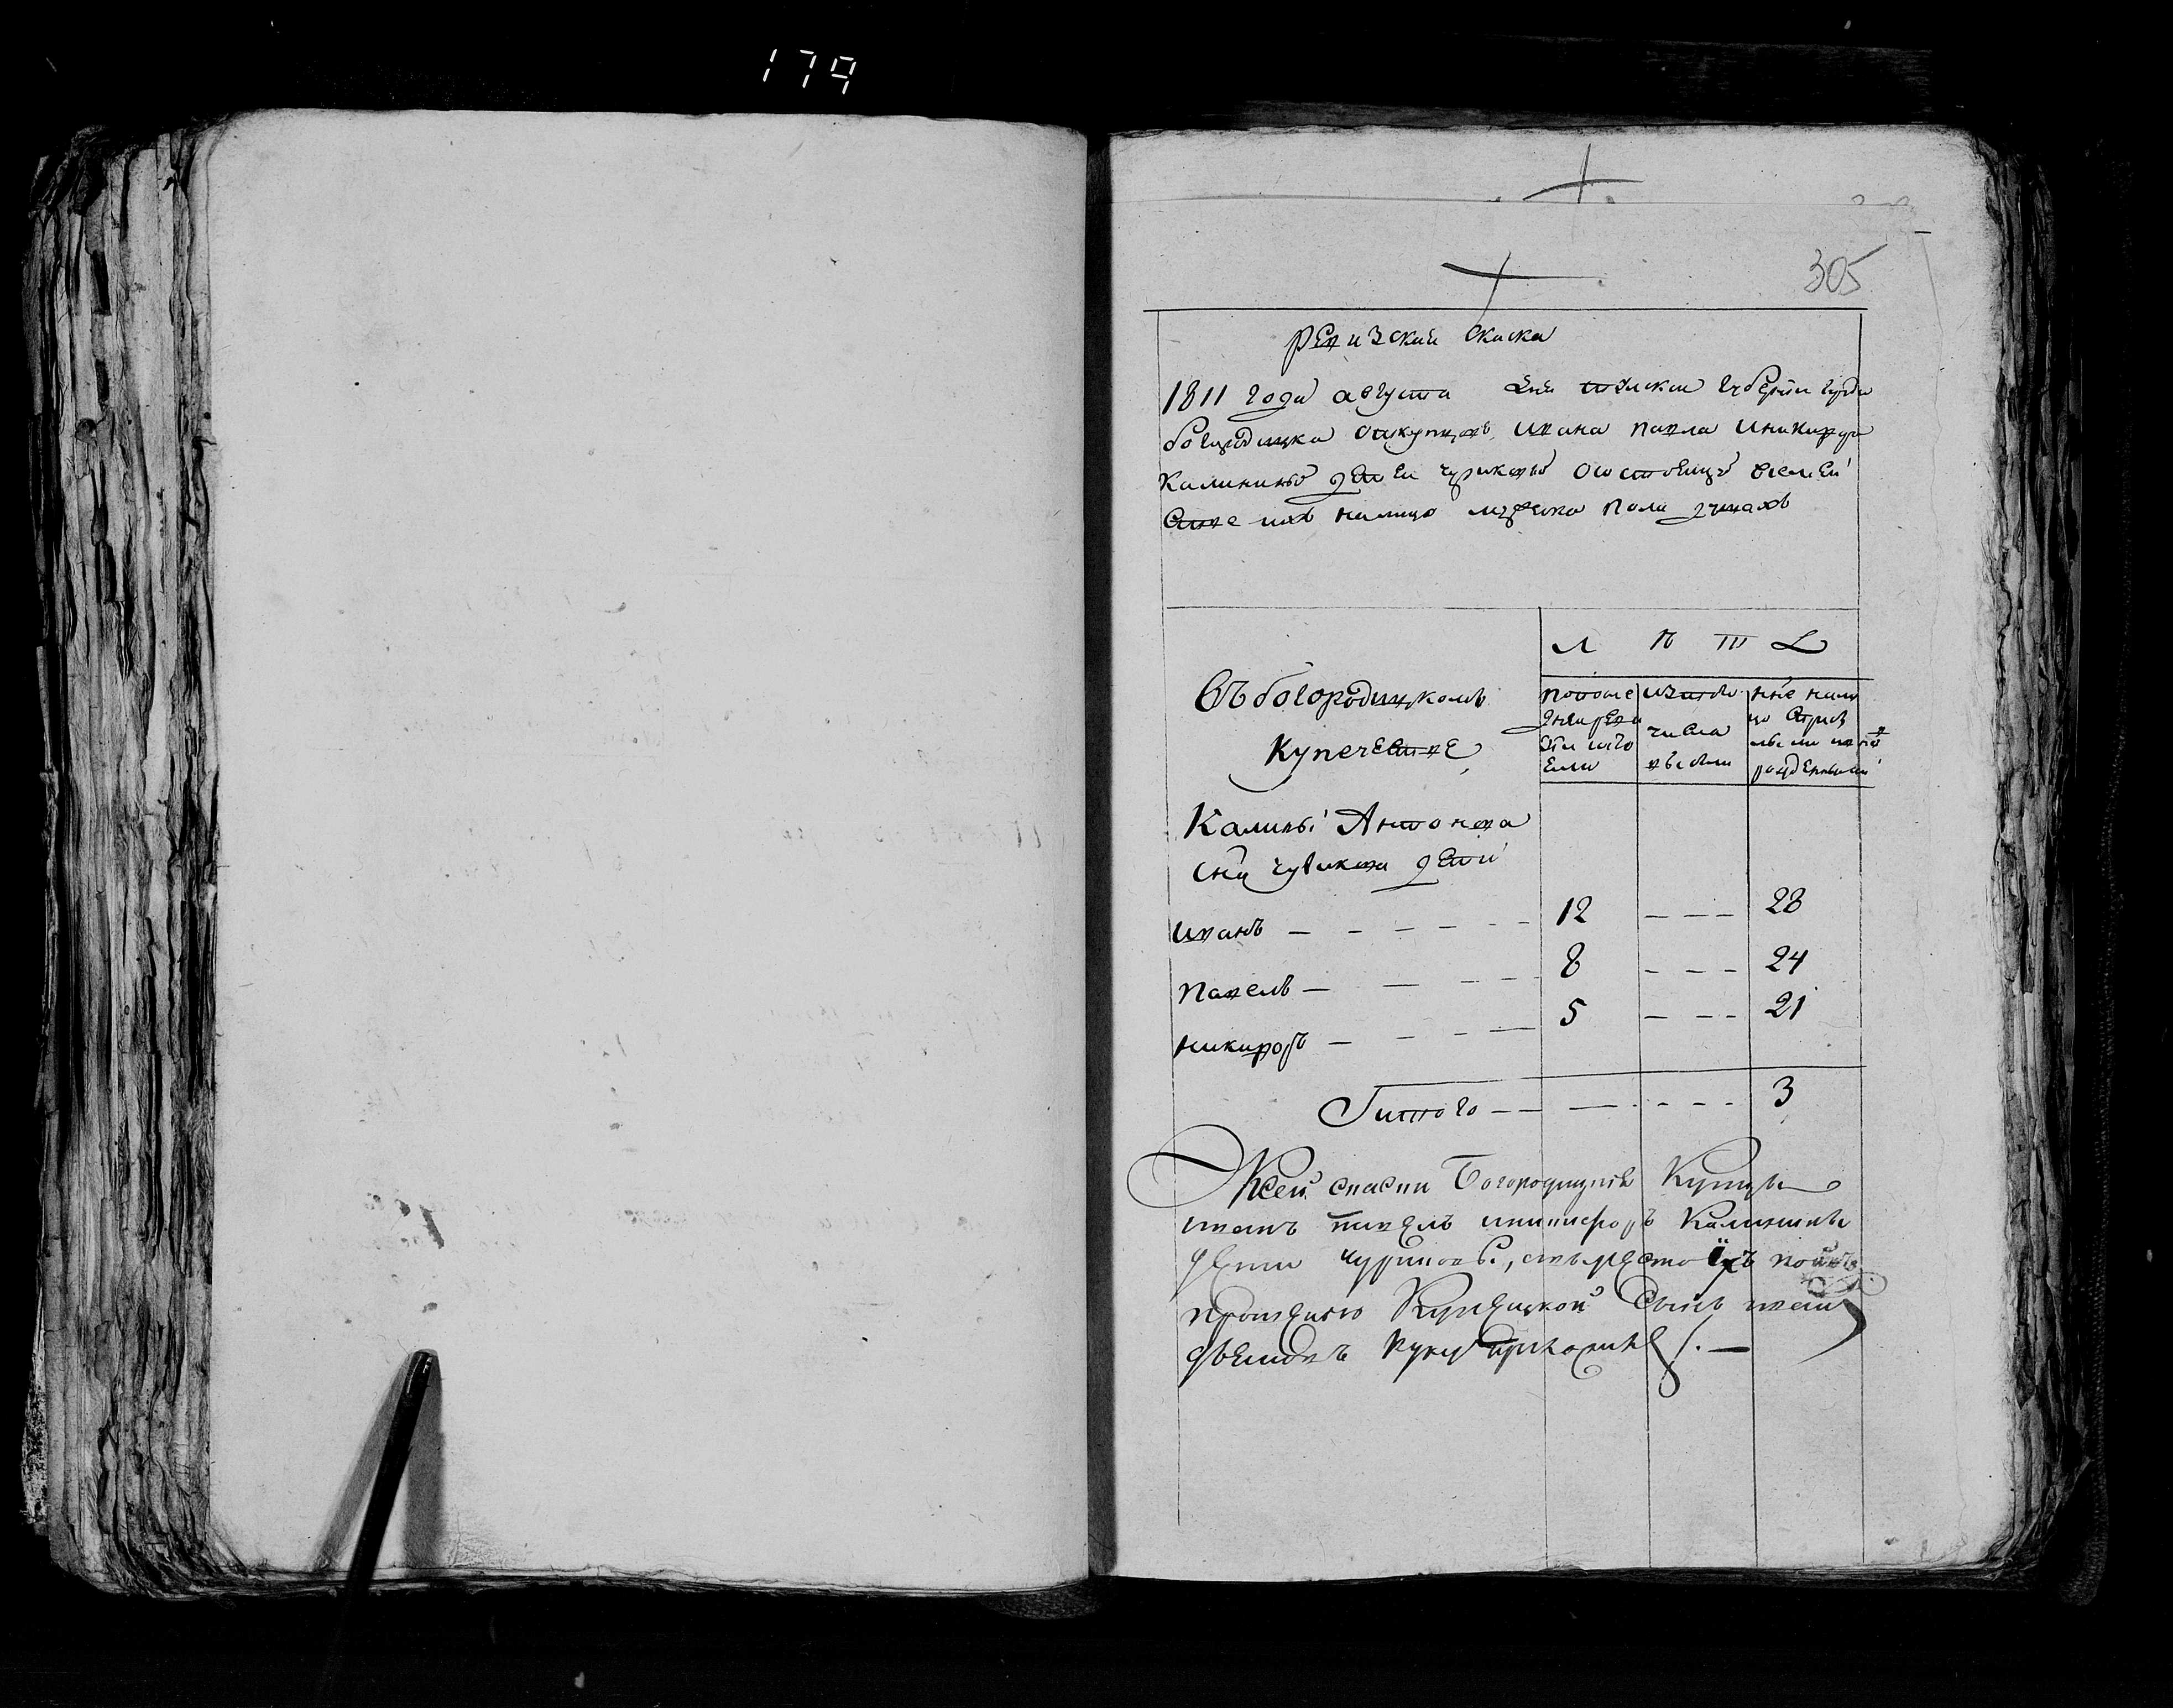 179
305
ревизская скаска
1811 года августа дня тулскои губернии города
богородицка откупцовъ ивана павла иникифора
Калининыхъ детеи чурикавыхъ осостоящихъ всемеи
стве ихъ налицо мужеска пола душахъ
Л ѣ т а
Въ богородицкомъ
Купечестве
по после
дней реви
зіи
изтого
числа
выбыли
нне нали
цо
рожденными
Калины Антонова
сна чурикова дети
иванъ — — — — — 12 — — — 28
павелъ — — — — 8 — — — 24
никифоръ — — — — 5 — — — 21
Итого — — — — — — 3
Ксей скаски Богородицкие Купцы
иванъ павелъ иникифоръ Калинины
дети чуриковы, а вместо ихъ по ихъ
прошению
руку приложилъ